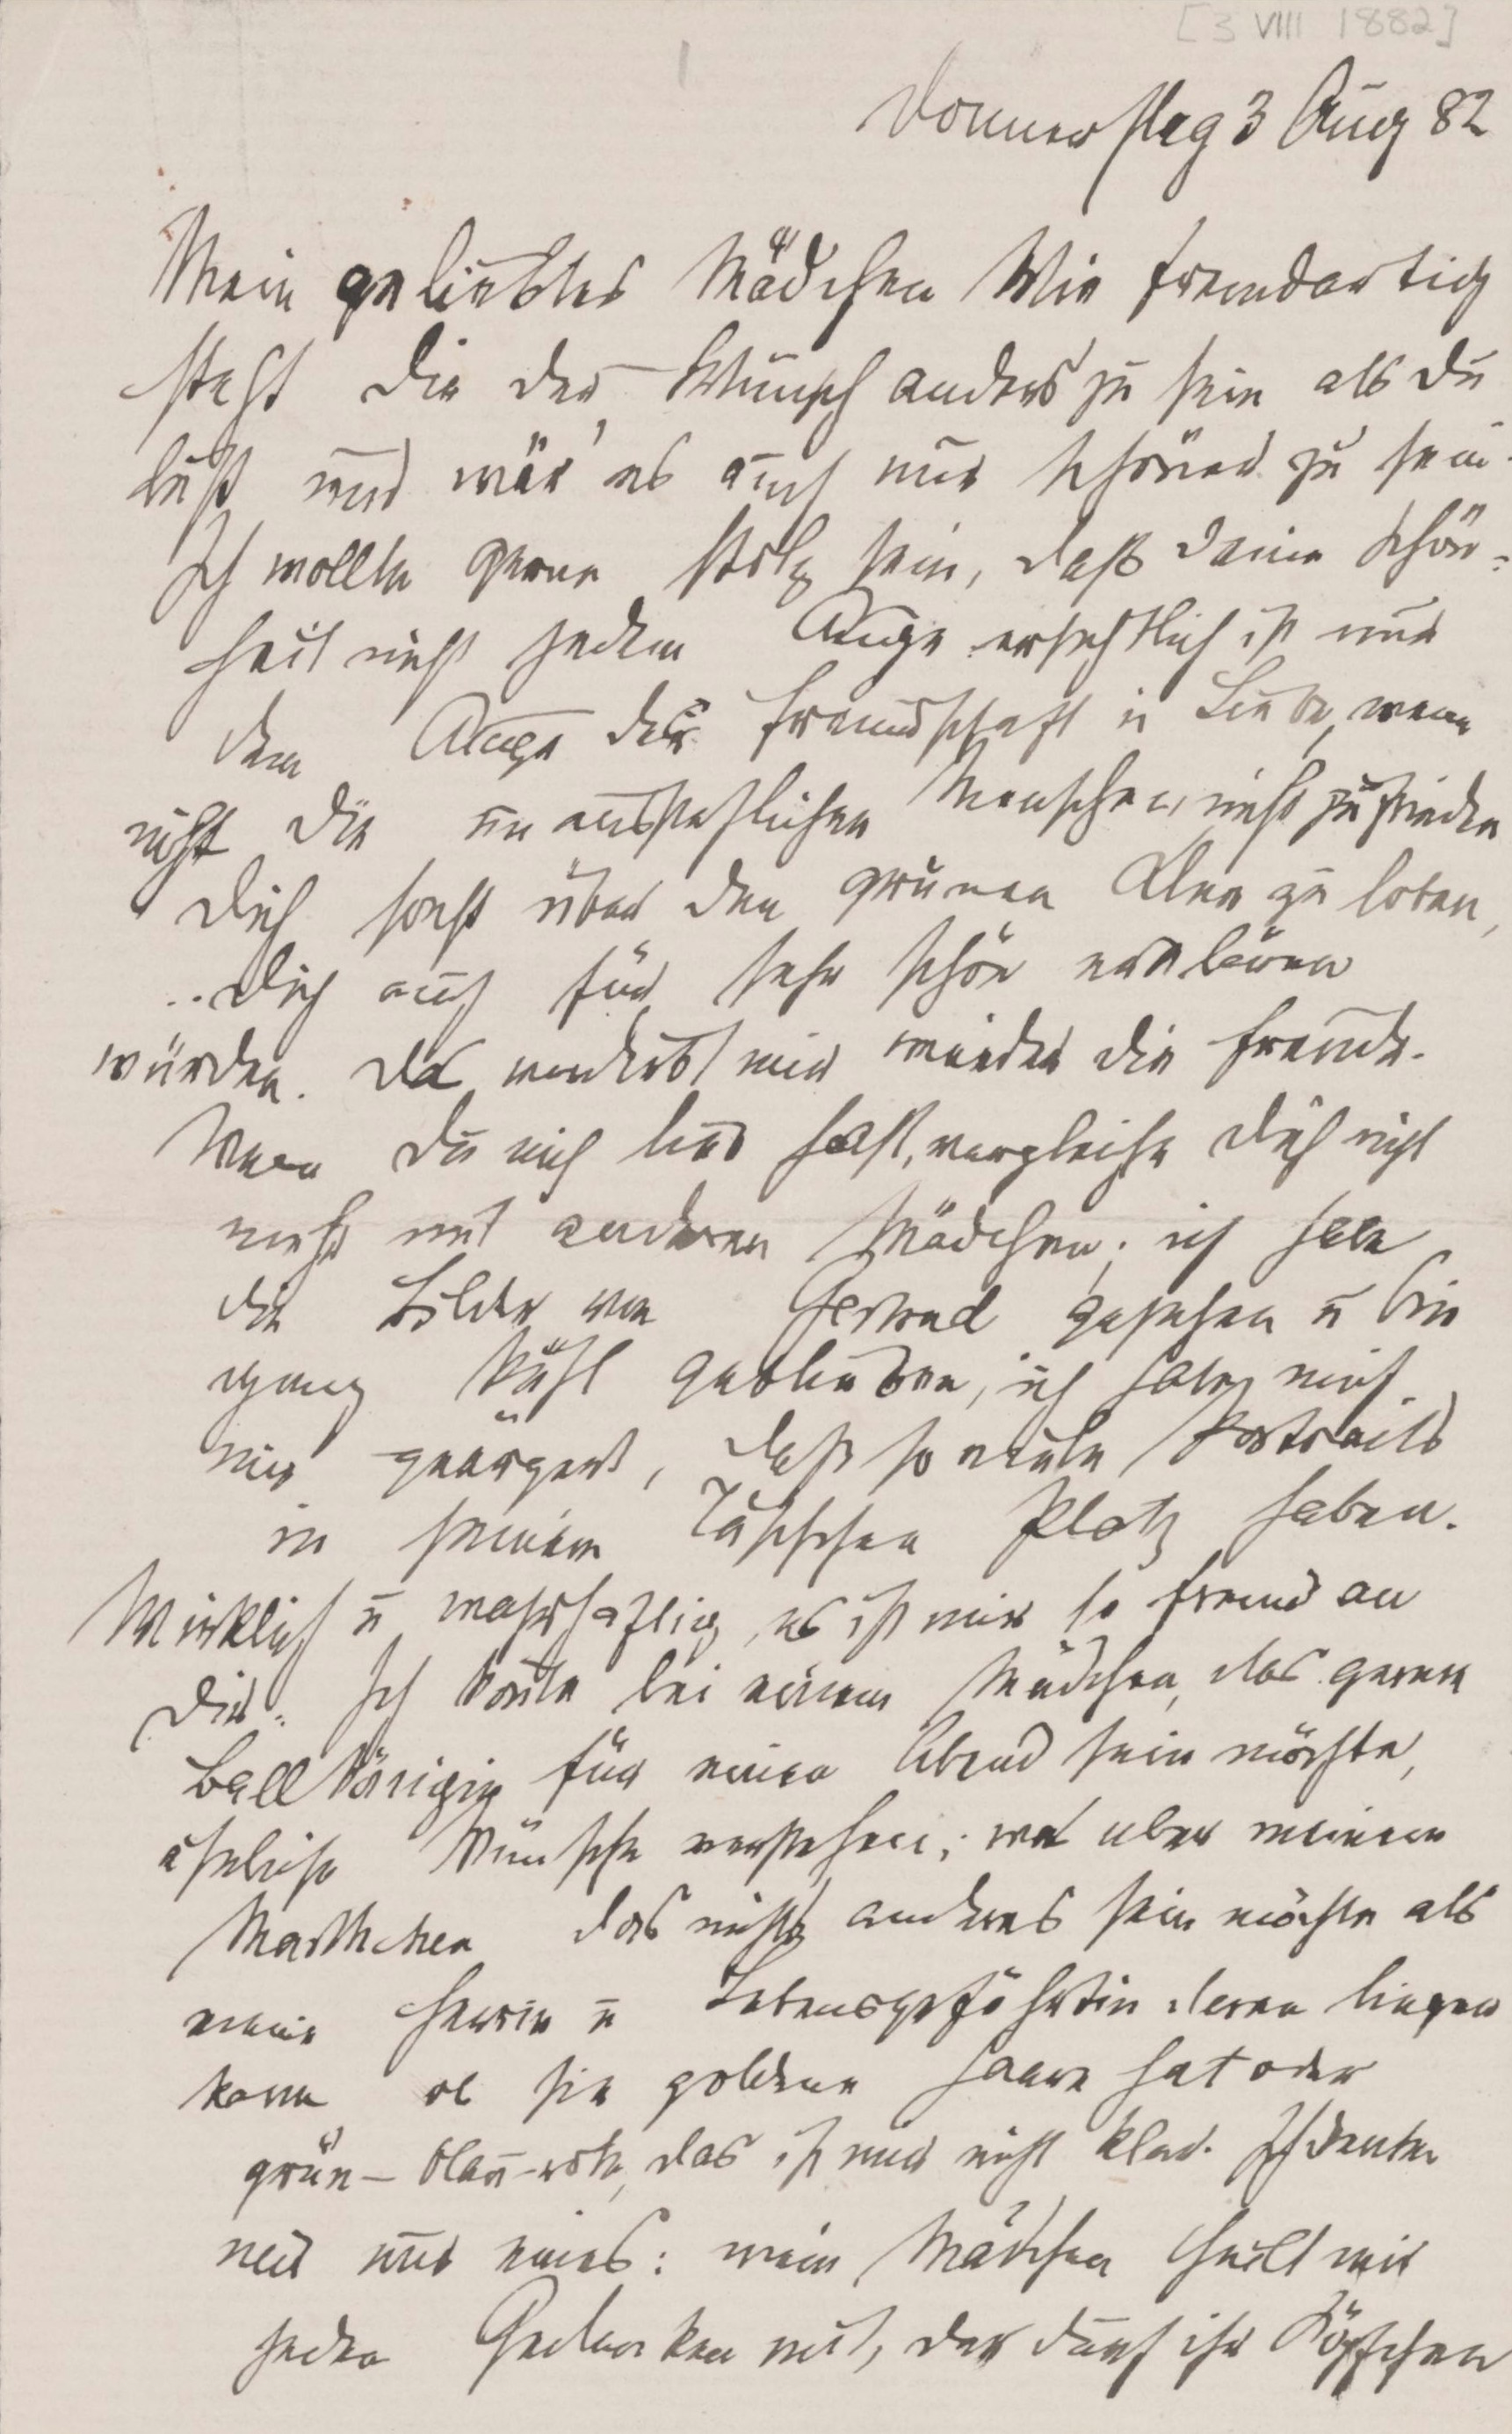 [3 VIII 1882]
Donnerstag 3 Aug 82
Mein geliebtes Mädchen Wie fremdartig
steht Dir der Wunsch anders zu sein als Du
bist und wär' es auch nur schöner zu sein.
Ich wollte gerne stolz sein, daß Deine Schön=
heit nicht jedem Auge ersichtlich ist nur
dem Auge der Freundschaft u Liebe, wenn
nicht die unausstehlichen Menschen, nicht zufrieden
Dich sonst über den grünen Klee zu loben,
Dich auch für sehr schön erklären
würden. Da verdirbt mir wieder die Freude.
Wenn Du mich lieb hast, vergleiche Dich nicht
mehr mit anderen Mädchen; ich habe
die Bilder von gesehen u bin
ganz kühl geblieben, ich habe mich
nur geärgert, daß so viele Portraits
in seinem Täschchen Platz haben.
Wirklich u wahrhaftig, es ist mir so fremd an
Dir. Ich könnte bei einem Mädchen, das gerne
Ballkönigin für einen Abend sein möchte,
ähnliche Wünsche verstehen; was aber meinem
Marthchen das nichts anderes sein möchte als
meine u Lebensgefährtin daran liegen
kann ob sie goldene Haare hat oder
grün-blau-rote, das ist mir nicht klar. Ich denke
mir nur eines: mein Mädchen theilt mir
jeden Gedanken mit, der durch ihr Köpfchen